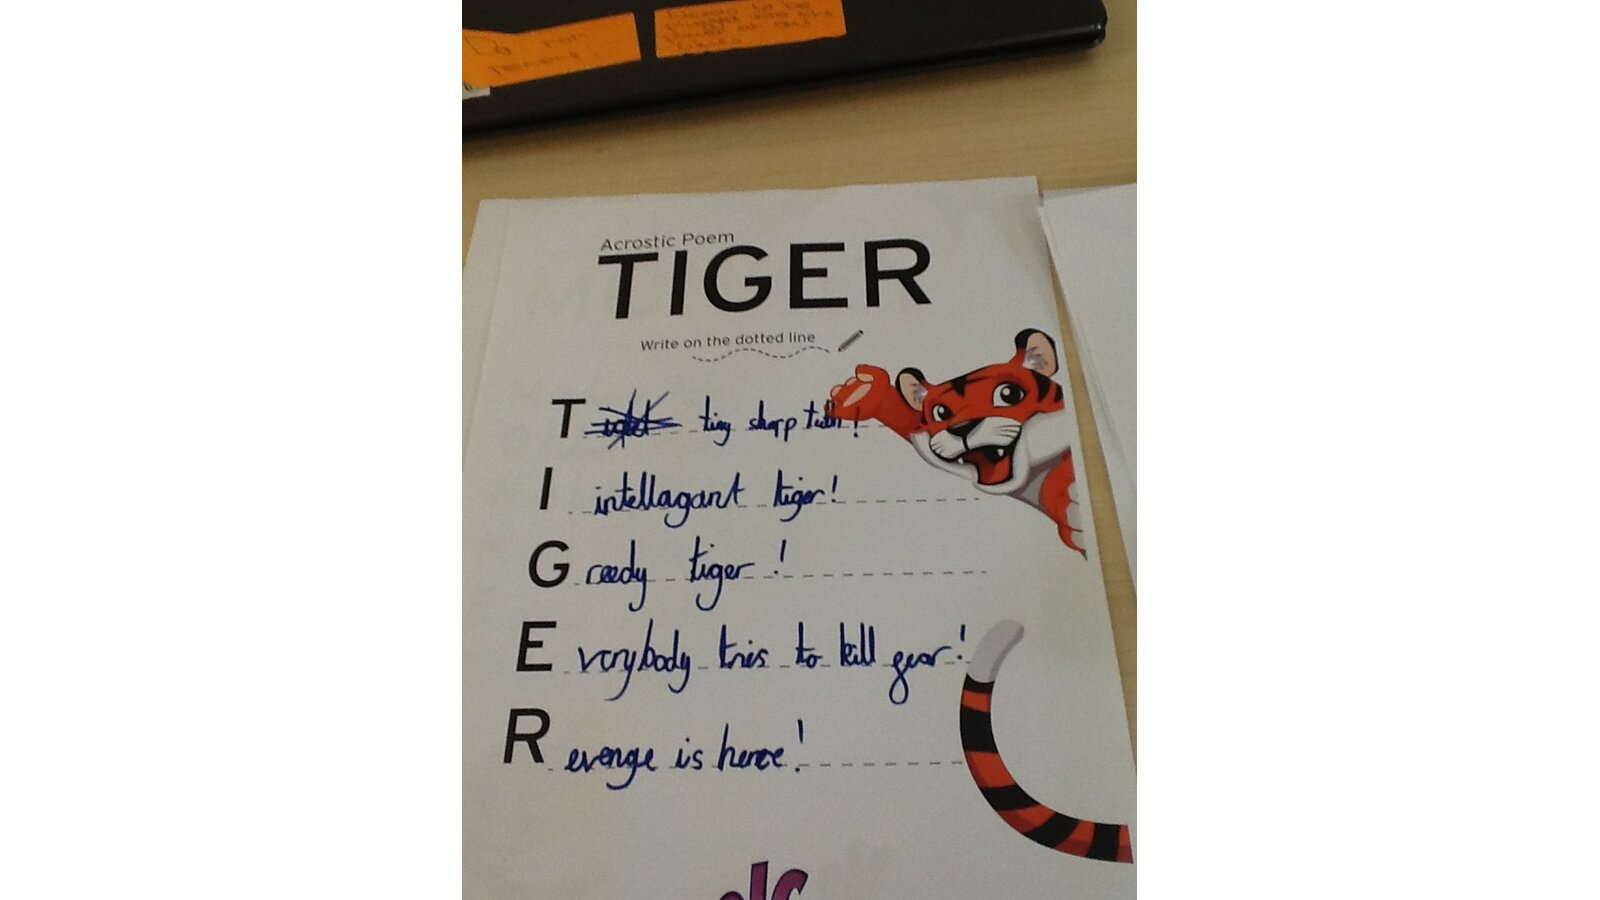 Do not
remove
Acrostic Poem
TIGER
Write on the dotted line
T tiny sharp teeth!
I intellagant tiger!
Greedy tiger!
Everybody tries to kill
Revenge is here!